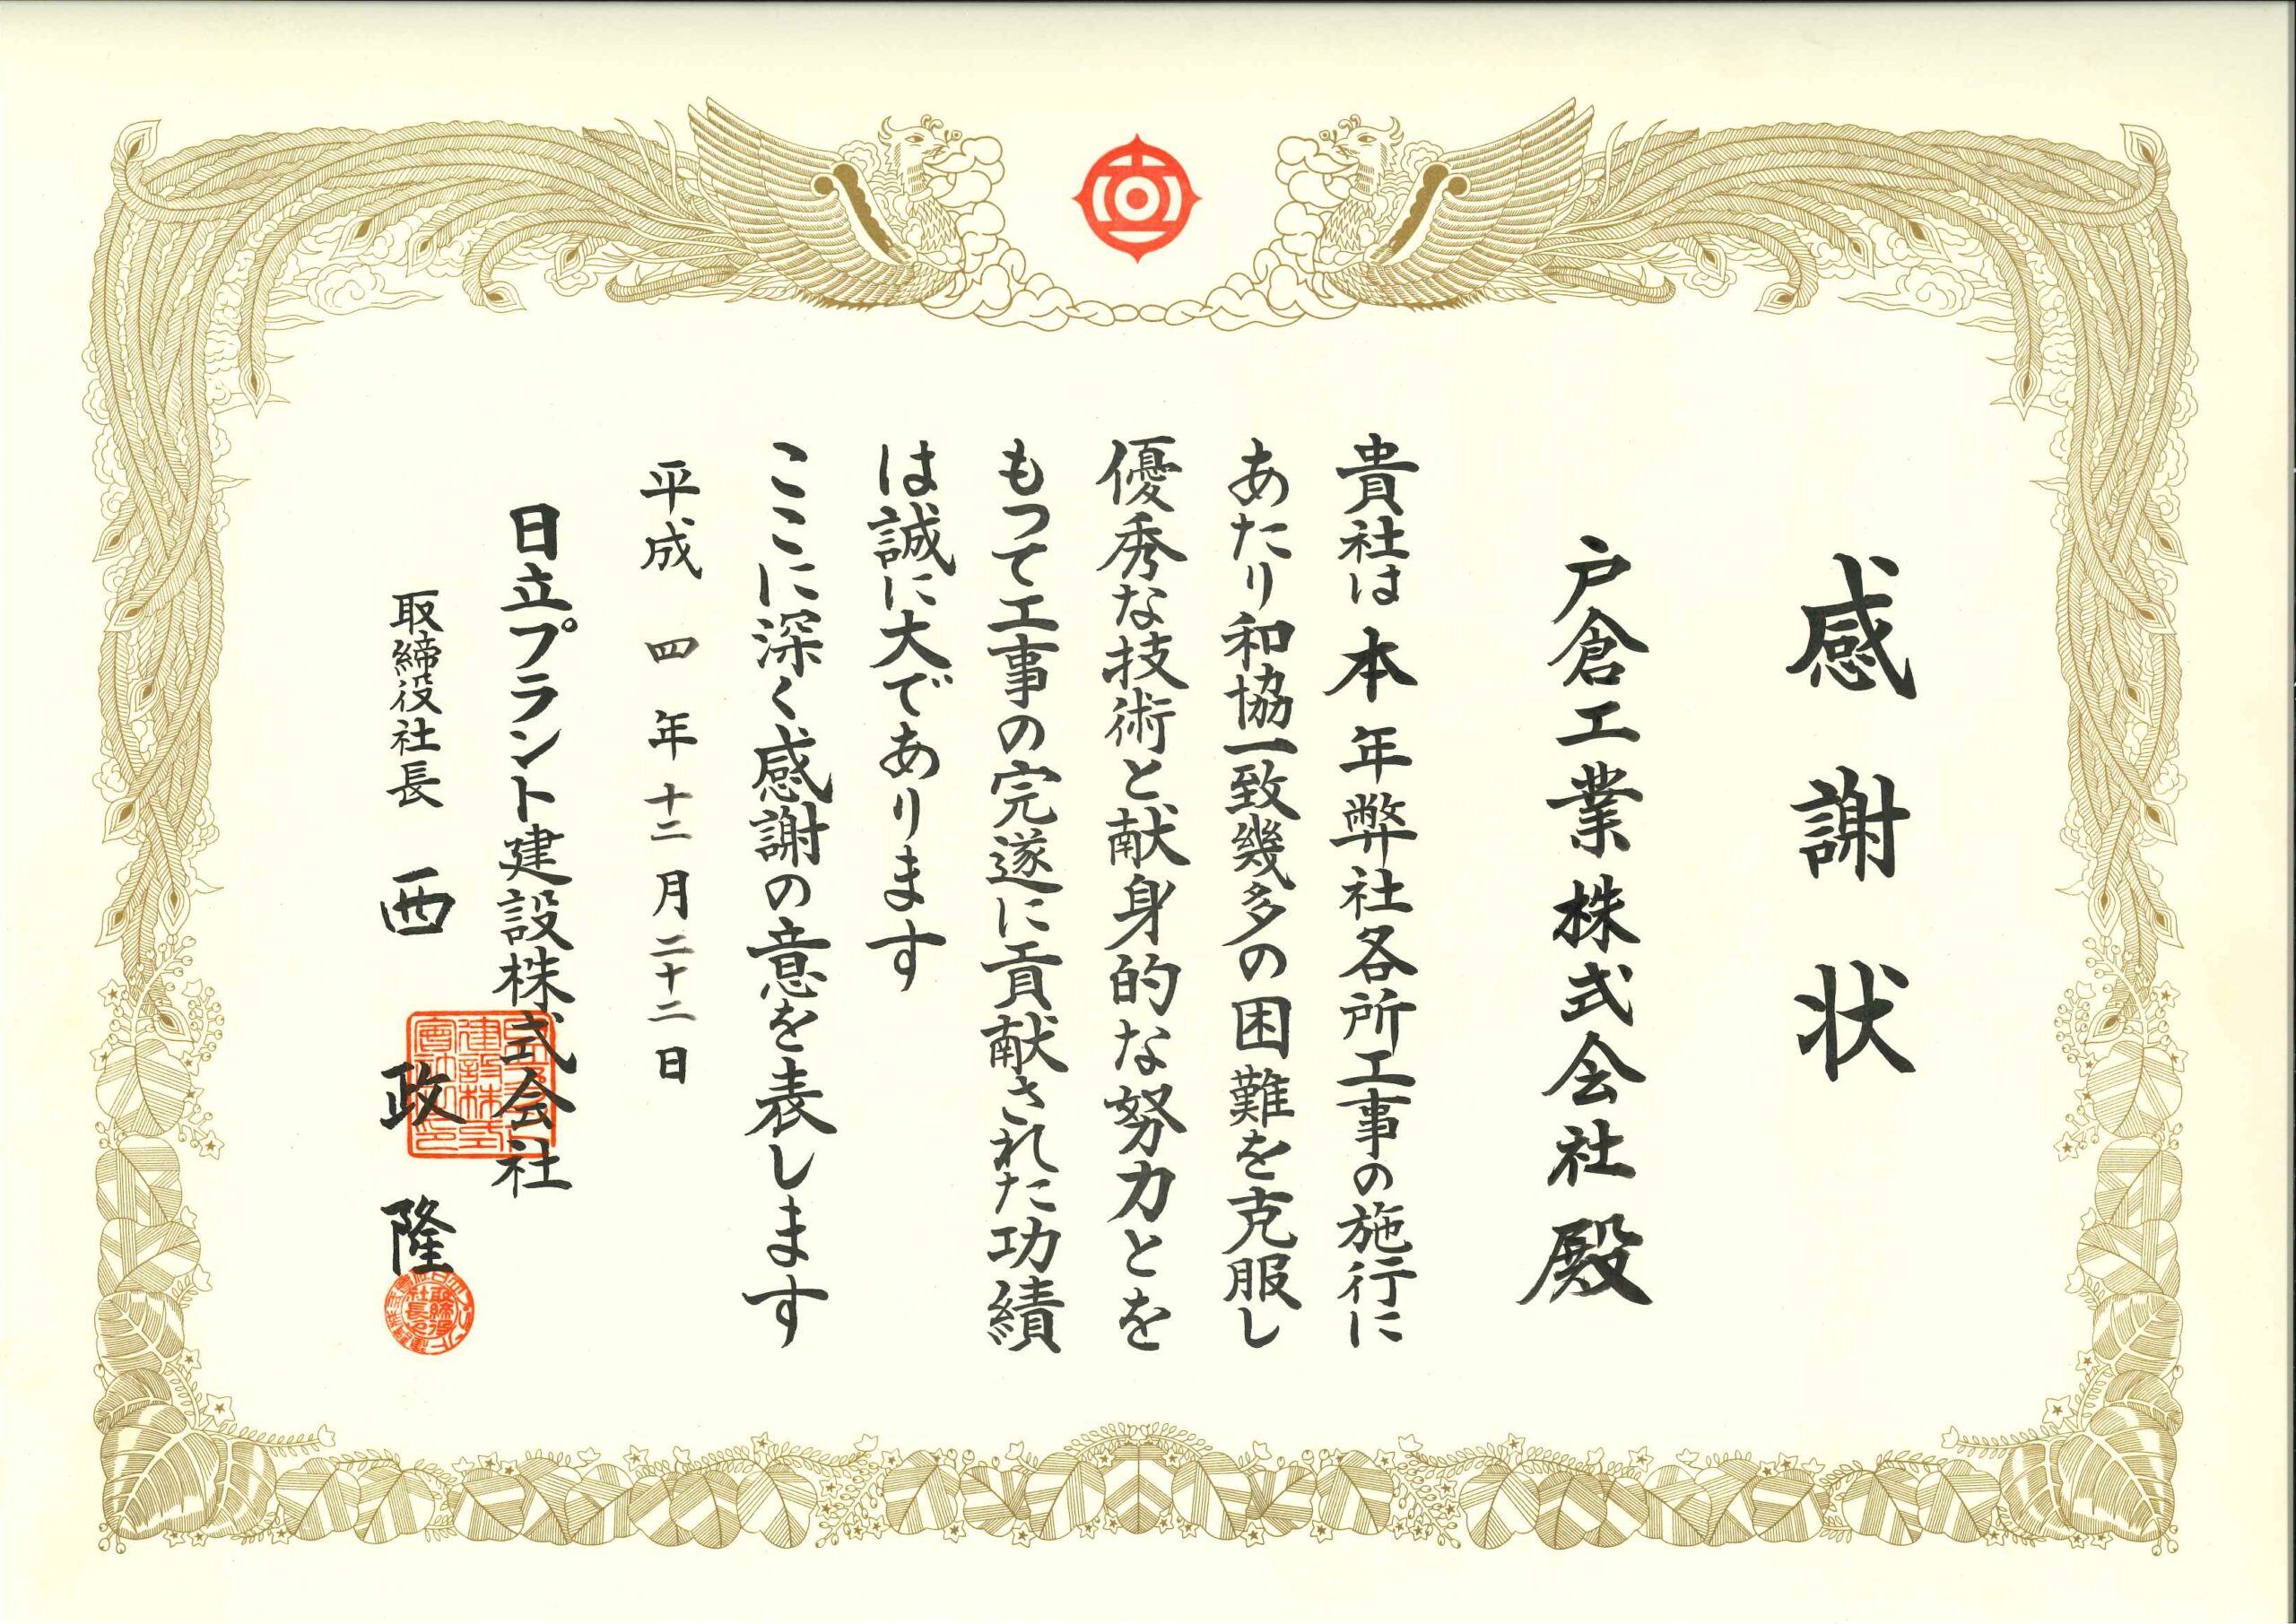 感謝状
戸倉工業株式会社殿
貴社は本年弊社各所工事の施行に
あたり和協一致幾多の困難を克服し
優秀な技術と献身的な努力とを
もつて工事の完遂に貢献された功績
は誠に大であります
ここに深く感謝の意を表します
平成四年十二月二十二日
日立プラント建設株式会社
取締役社長 西政隆